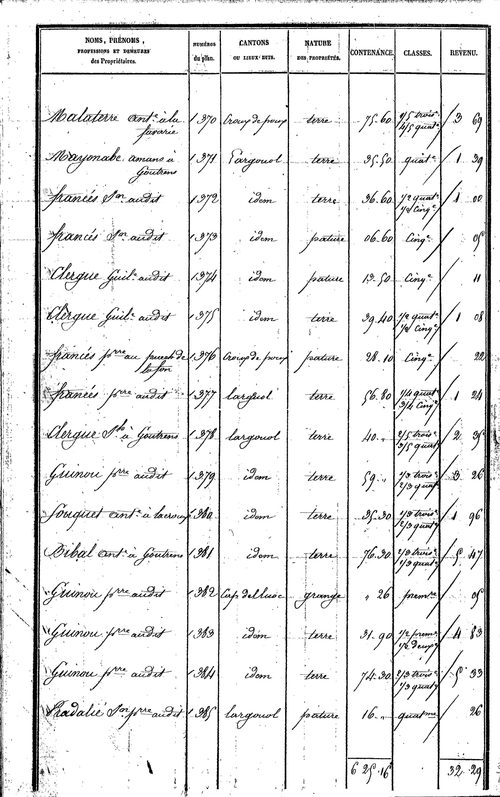 NOMS, PRÉNOMS, PROFESSIONS ET DEMEURES des Propriétaires. NUMÉROS du plan. CANTONS OU LIEUX-DITS. NATURE DES PROPRIÉTÉS. CONTENANCE. CLASSES. REVENU.
Malaterre ant.e à la 1370 terre 75-60 1/5 trois. 3 69
4/5 quat.e
Mayonabe amans à 1371 Largouol terre 35-50 quat.e 1 39
Goutrens
francés audit 1372 idem terre 36-60 1/2 quat.e 1 00
1/2 Cinq.e
francés audit 1373 idem pature 06-60 Cinq.e 05
Clergue Guil.e audit 1374 idem pature 13-50 Cinq.e 11
Clergue Guil.e audit 1375 idem terre 39-40 1/2 quat.e 1 08
1/2 Cinq.e
francés pre au puech de 1376 pature 28-10 Cinq.e 22
francés pre audit 1377 largouol terre 56-80 1/4 quat. 1 24
3/4 Cinq.e
Clergue à Goutrens 1378 largouol terre 40 " 2/5 trois. 2 35
3/5 quat.e
Guinou pre audit 1379 idem terre 59 " 1/3 trois. 3 26
2/3 quat.e
Souquet ant.e à lacroux 1380 idem terre 35-30 1/3 trois. 1 96
2/3 quat.e
Tibal ant.e à Goutrens 1381 idem terre 76-30 2/3 trois. 5 47
1/3 quat.e
Guinou pre audit 1382 grange " 26 prem.re 05
Guinou pre audit 1383 idem terre 31-90 1/2 prem. 4 83
1/2 deux.e
Guinou pre audit 1384 idem terre 74-30 2/3 trois. 5 33
1/3 quat.e
Pradalié pre audit 1385 largouol pature 16 " quat.me 26
6 25-16 32-29